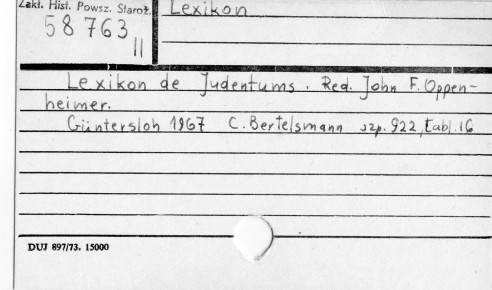 Zakł. Hist. Powsz. Staroż.
Lexikon
58 763
II
Lexikon de Judentums. Red. John F. Oppen-
heimer.
Güntersloh 1967 C. Bertelsmann szp. 922, tabl. 16
DUJ 897/73. 15000